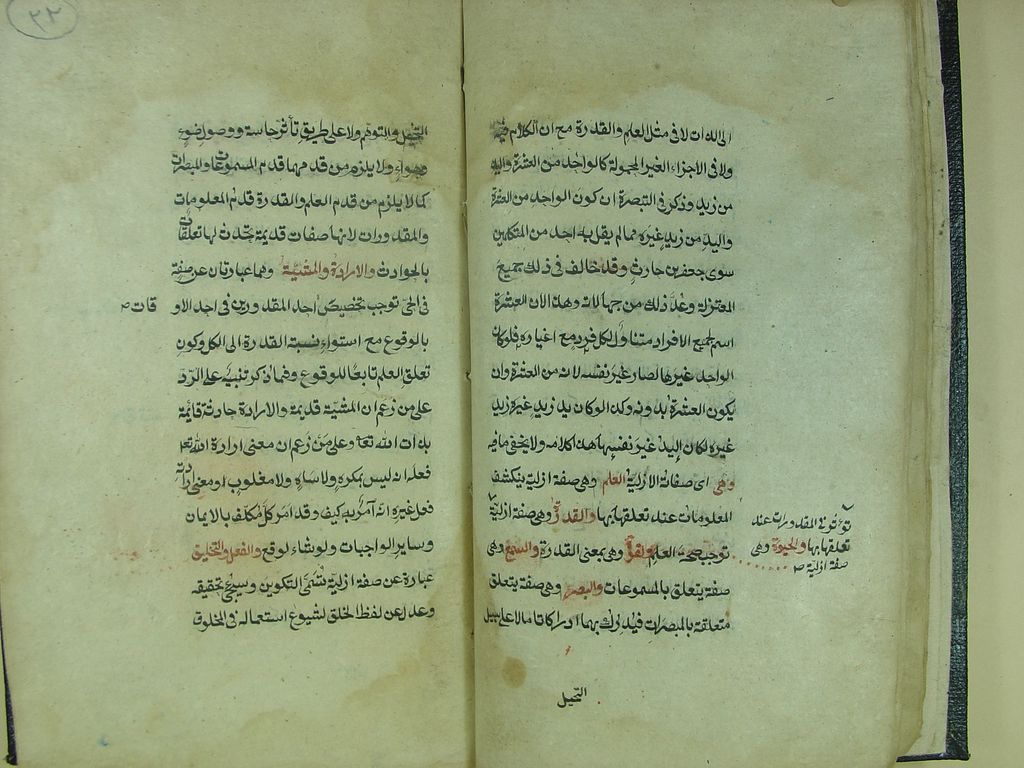 الى الذات لا فى مثل العلم والقدرة مع ان الكلام فيه
ولا فى الاجزاء الغير المحمولة كالواحد من العشرة واليد
من زيد وذكر فى التبصرة ان كون الواحد من العشرة
واليد من زيد غيره مما لم يقل به احد من المتكلمين
سوى جعفر بن حارث وقد خالف فى ذلك جميع
المعتزلة وعد ذلك من جهالاته وهذا لان العشرة
اسم لجميع الافراد متناول لكل فرد مع اغياره فلو كان
الواحد غيرها لصار غير نفسه لانه من العشرة وان
يكون العشرة بدونه وكذا لو كان يد زيد غيره زيد
غيره لكان اليد غير نفسها هذا كلامه ولا يخفى ما فيه
وهى اى صفاته الازلية العلم وهى صفة ازلية ينكشف
المعلومات عند تعلقها بها والقدرة وهى صفة ازلية
توجب صحة العلم والقوة وهى بمعنى القدرة والسمع وهى
صفة يتعلق بالمسموعات والبصر وهى صفة يتعلق
متعلقة بالمبصرات فيدرك بهما ادراكا تاما لا على سبيل
تؤثر فى المقدورات عند
تعلقها بها والحيوة وهى
صفة ازلية صح
التخيل
٢٢
التخيل والتوهم ولا على طريق تأثر حاسة ووصول ضوء
وهواء ولا يلزم من قدمهما قدم المسموعات والمبصرات
كما لا يلزم من قدم العلم والقدرة قدم المعلومات
والمقدورات لانها صفات قديمة تحدث لها تعلقات
بالحوادث والارادة والمشية وهما عبارتان عن صفة
فى الحى توجب تخصيص احد المقدورين فى احد الاو
قات صح
بالوقوع مع استواء نسبة القدرة الى الكل وكون
تعلق العلم تابعا للوقوع وفيما ذكر تنبيه على الرد
على من زعم ان المشية قديمة والارادة حادثة قائمة
بذات الله تعا وعلى من زعم ان معنى ارادة الله تعا
فعله انه ليس بمكره ولا ساه ولا مغلوب ومعنى ارادته
فعل غيره انه آمر به كيف وقد امر كل مكلف بالايمان
وساير الواجبات ولو شاء لوقع والفعل والتخليق
عبارة عن صفة ازلية تسمى التكوين وسيجئ تحقيقه
وعدل عن لفظ الخلق لشيوع استعماله فى المخلوق